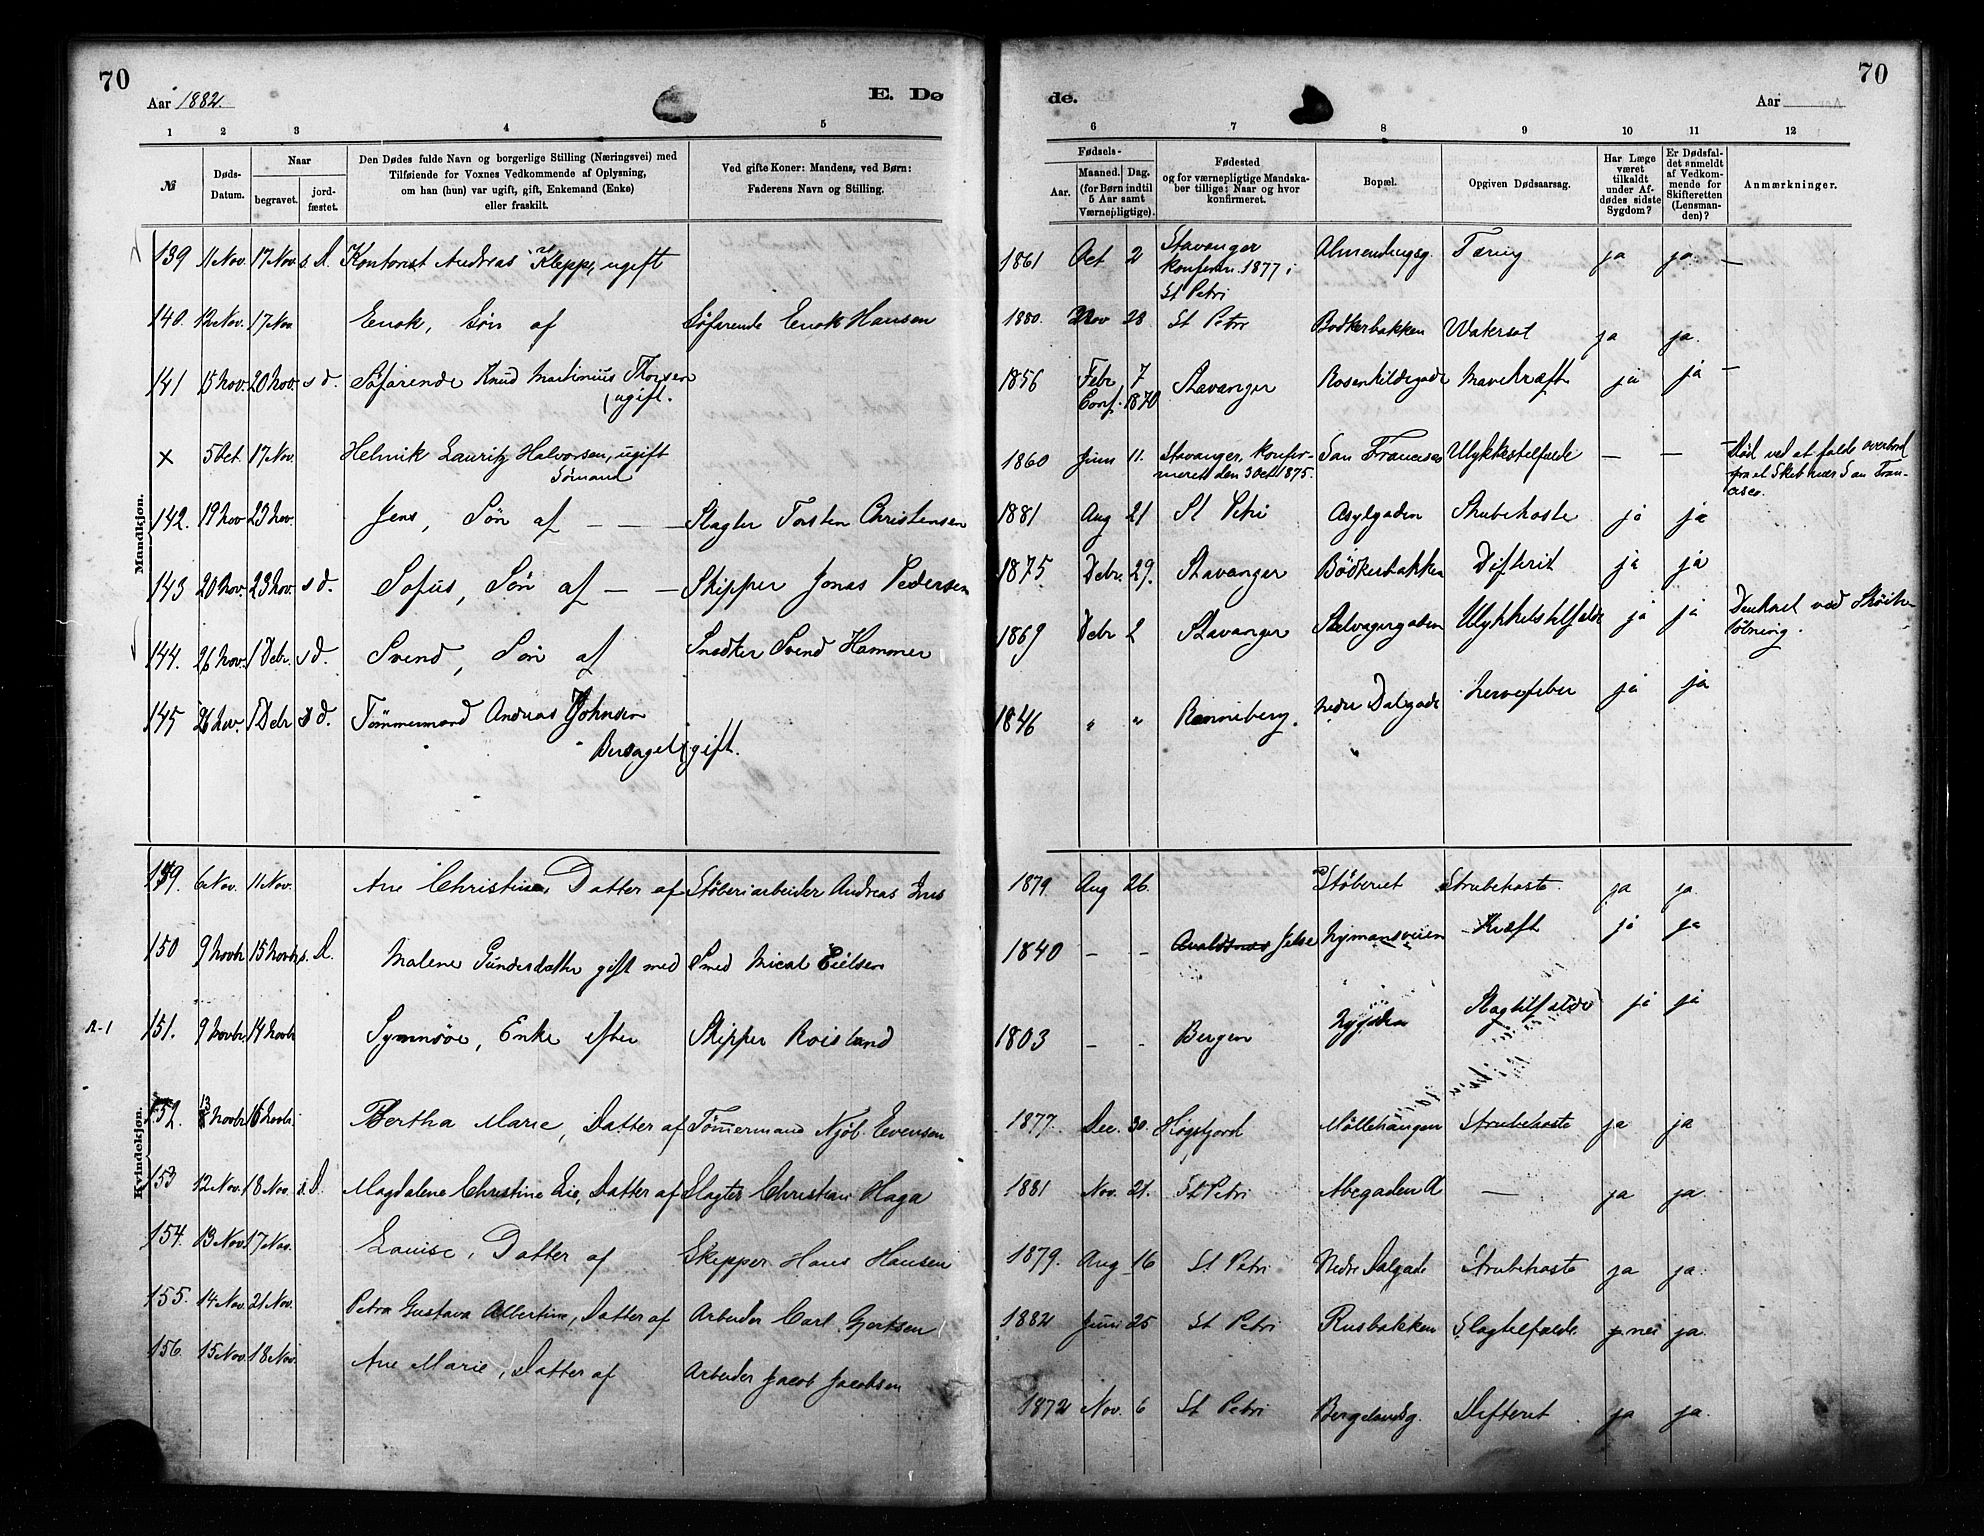 70
Aar 1882.
E. Dø
de.
Aar
70
1 2 3 4 5 6 7 8 9 10 11 12
№
Døds-
Datum.
Naar
begravet.
jord-
fæstet.
Den Dødes fulde Navn og borgerlige Stilling (Næringsvei) med
Tilføiende for Voxnes Vedkommende af Oplysning,
om han (hun) var ugift, gift, Enkemand (Enke)
eller fraskilt.
Ved gifte Koner: Mandens, ved Børn:
Faderens Navn og Stilling.
Fødsels-
Aar.
Maaned. Dag.
(for Børn indtil
5 Aar samt
Værnepligtige).
Fødested
og for værnepligtige Mandska-
ber tillige: Naar og hvor
konfirmeret.
Bopæl.
Opgiven Dødsaarsag.
Har Læge
været
tilkaldt
under Af-
dødes sidste
Sygdom?
Er Dødsfal-
det anmeldt
af Vedkom-
mende for
Skifteretten
(Lensman-
den)?
Anmærkninger.
Mandkjøn.
139 11 Nov. 17 Nov. s. D. Kontorist Andreas Kleppe, ugift 1861 Oct 2 Stavanger Tæring ja ja —
konferm. 1877 i
St Petri
140. 12 Nov. 17 Nov Enok, Søn af Søfarende Enok Hansen 1880. Nov 28 St Petri Bødkerbakken Watersot ja ja.
141 15 Nov. 20 Nov. s d. Søfarende Knud Martinius Thorsen 1856 Febr 7 Stavanger Rosenkildegade Mavekræft ja ja —
ugift. Conf. 1870
x 5 Oct. 17 Nov. Helmik Lauritz Halvorsen, ugift 1860 Juni 11. Stavanger, konfir- San Francisco Ulykkestilfælde — — Død ved at falde overbord
Sømand meret den 3 Oct 1875. fra et Skib nær San Fran-
cisco.
142. 19 Nov 23 Nov. Jens, Søn af — — Slagter Torsten Christensen 1881 Aug 21 St Petri Asylgaden Strubehoste ja ja
143 20 Nov. 23 Nov. s d. Sofus, Søn af — — Skipper Jonas Pedersen 1875 Debr. 29. Stavanger Bødkerbakken Difterit ja ja
144. 26 Nov. 1 Debr. s d. Svend, Søn af Snedker Svend Hammer 1869 Debr 2 Stavanger Ulykkelstilfælde ja ja Druknet ved Skøite-
løbning.
145 26 Nov. 1 Debr s d. Tømmermand Andreas Johnsen 1846 " " Renneberg. Nedre Dalgade Nervefeber ja ja
Bersagel, gift.
Kvindekjøn.
149. 6 Nov. 11 Nov. Ane Christine, Datter af Støberiarbeider Andreas 1879. Aug 26. Støberiet Strubehoste. ja ja
150 9 Novbr 15 Novbr s. D. Malene Gundersdatter gift med Smed Mical Eielsen 1840 – – Avaldsnes Jelse Nymansveien Kræft ja ja
A-1 151. 9 Novbr 14 Novbr Synnøve, Enke efter Skipper Roisland 1803 – – Bergen Nygaden Slagtilfælde ja ja
152. 13 Novbr 16 Novbr Bertha Marie, Datter af Tømmermand Njøb. Evensen 1877. Dec. 30. Høgsfjord Møllehaugen Strubehoste ja ja
153 12 Nov. 18 Nov. s. D. Magdalene Christine Lie, Datter af Slagter Christian Haga 1881 Nov. 21. St Petri — ja ja
154. 13 Nov 17 Nov. Louise, Datter af Skipper Hans Hansen 1879. Aug 16 St Petri Nedre Dalgade Strubehoste ja ja.
155. 14 Nov. 21 Nov. Petra Gustava Albertine, Datter af Arbeider Carl Gjertsen 1882 Juni 25 St Petri Rusbakken Slagtilfælde nei ja
156. 15 Nov. 18 Nov. Ane Marie, Datter af Arbeider Jacob Jacobsen 1872 Nov. 6 St Petri Bergelandsg. Difterit ja ja.